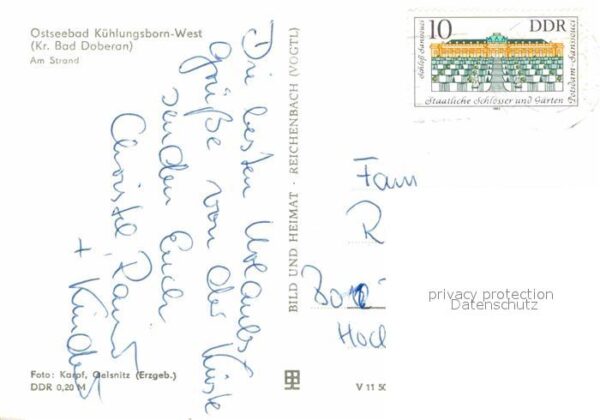 Ostseebad Kühlungsborn-West
(Kr. Bad Doberan)
Am Strand
Die besten Urlaubs
grüße von der Küste
senden Euch
Christel, Paul
+ Kinder
Foto: Karpf, Oelsnitz (Erzgeb.)
DDR 0,20 M
BILD UND HEIMAT · REICHENBACH (VOGTL)
V 11 50
10 DDR
Schloß Sanssouci
Potsdam-Sanssouci
Staatliche Schlösser und Gärten
Fam
R
Hoch
privacy protection
Datenschutz